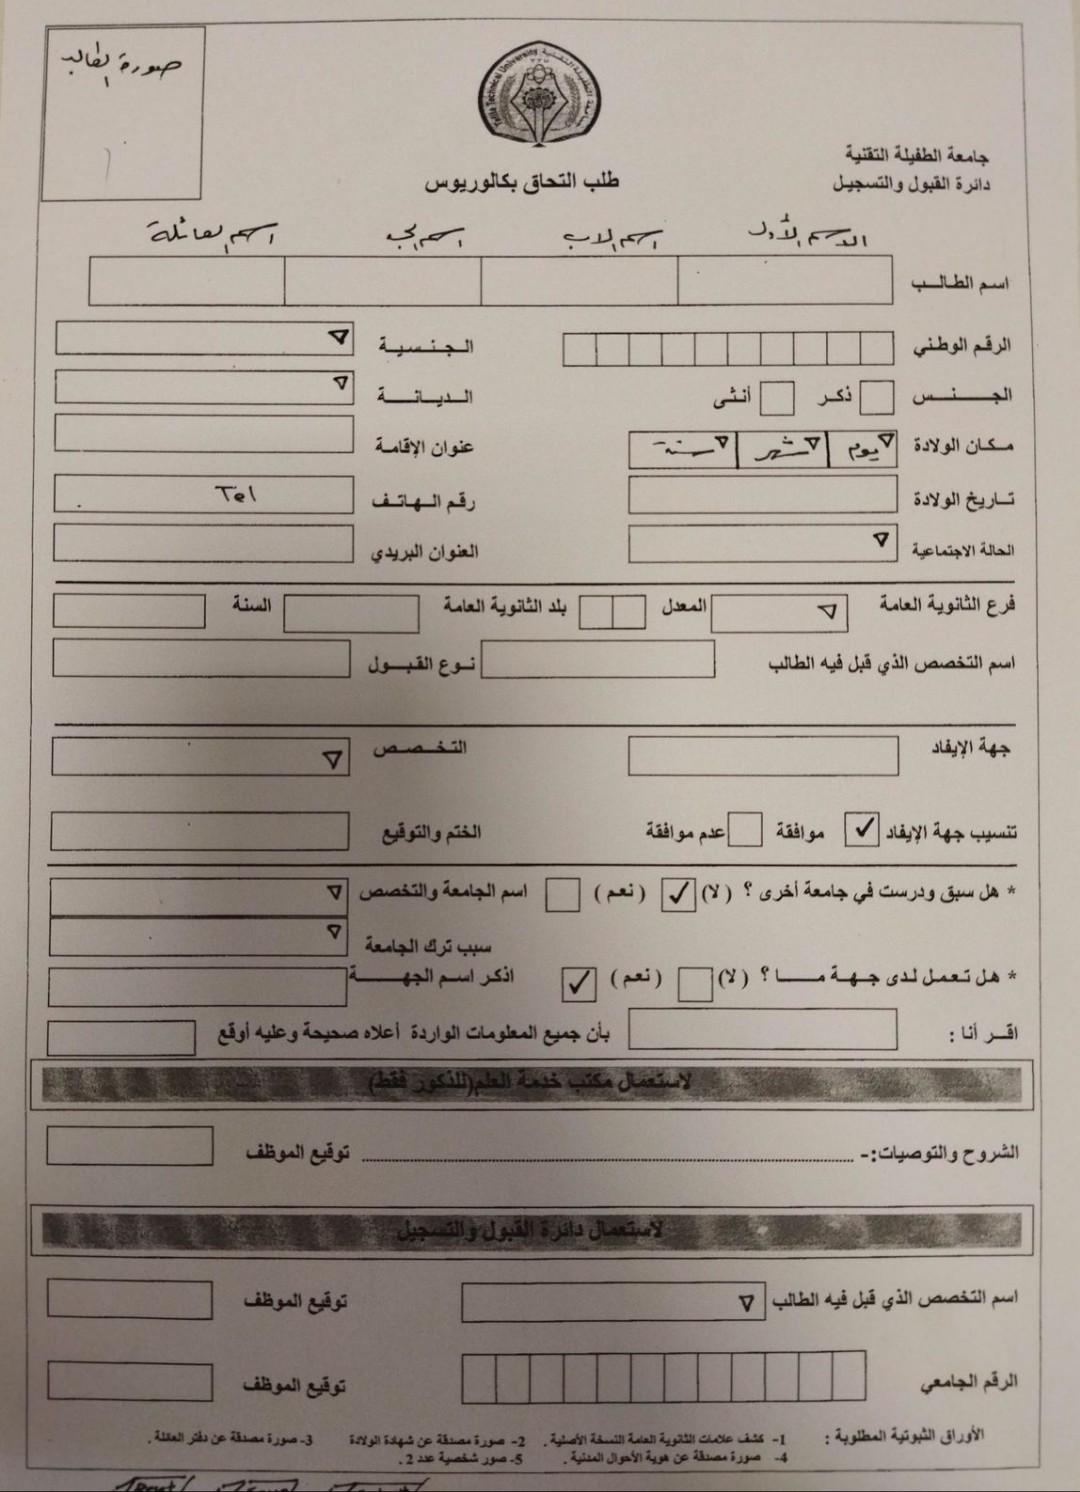 صورة الطالب
Tafila Technical University جامعة الطفيلة التقنية
جامعة الطفيلة التقنية
دائرة القبول والتسجيل
طلب التحاق بكالوريوس
الاسم الأول اسم الاب اسم الجد اسم العائلة
اسم الطالب
الرقم الوطني الجنسية
الجنس ذكر أنثى الديانة
مكان الولادة يوم شهر سنة عنوان الإقامة
تاريخ الولادة رقم الهاتف Tel
الحالة الاجتماعية العنوان البريدي
فرع الثانوية العامة المعدل بلد الثانوية العامة السنة
اسم التخصص الذي قبل فيه الطالب نوع القبول
جهة الإيفاد التخصص
تنسيب جهة الإيفاد ✓ موافقة عدم موافقة الختم والتوقيع
* هل سبق ودرست في جامعة أخرى ؟ (لا) ✓ (نعم) اسم الجامعة والتخصص
سبب ترك الجامعة
* هل تعمل لدى جهة ما ؟ (لا) (نعم) ✓ اذكر اسم الجهة
اقر أنا : بأن جميع المعلومات الواردة أعلاه صحيحة وعليه أوقع
لاستعمال مكتب خدمة العلم(للذكور فقط)
الشروح والتوصيات:- ........................ توقيع الموظف
لاستعمال دائرة القبول والتسجيل
اسم التخصص الذي قبل فيه الطالب توقيع الموظف
الرقم الجامعي توقيع الموظف
الأوراق الثبوتية المطلوبة : 1- كشف علامات الثانوية العامة النسخة الأصلية . 2- صورة مصدقة عن شهادة الولادة 3- صورة مصدقة عن دفتر العائلة .
4- صورة مصدقة عن هوية الأحوال المدنية . 5- صور شخصية عدد 2 .